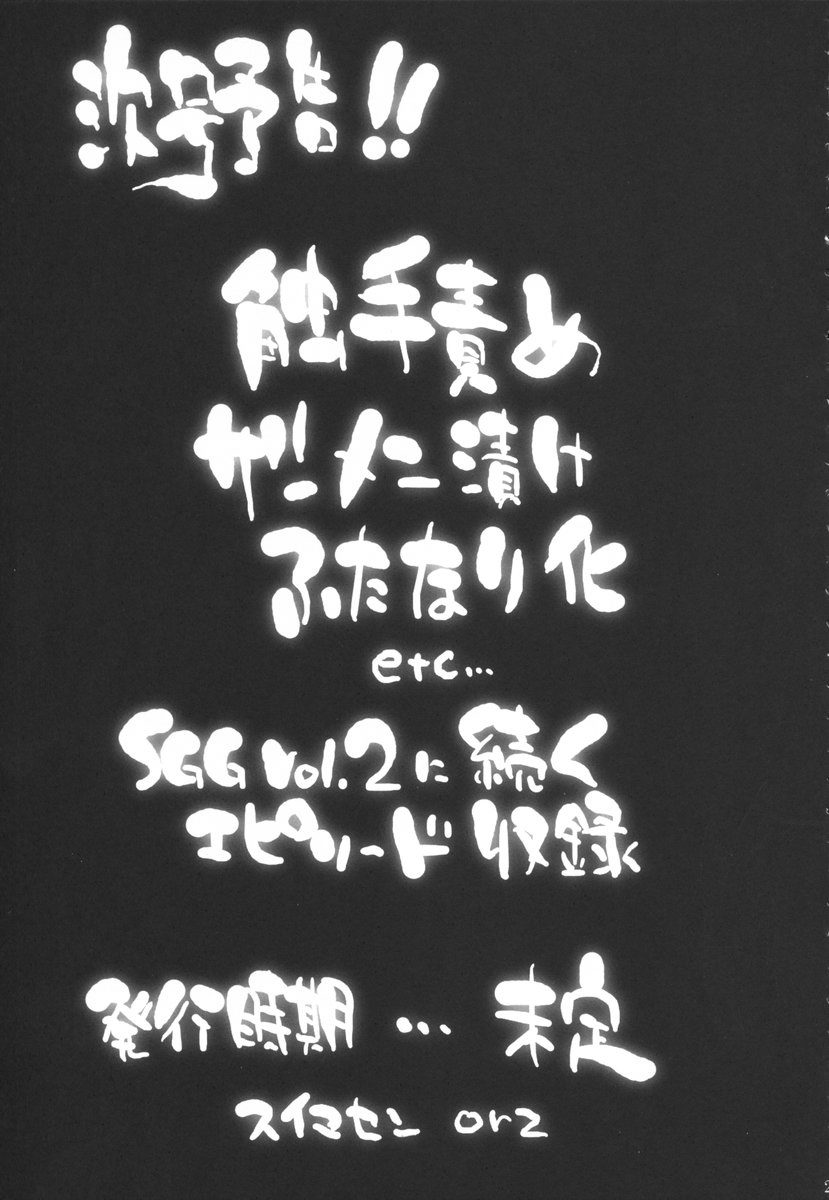 次号予告!!
触手責め
ザーメン漬け
ふたなり化
etc...
SGG Vol.2に続く
エピソード収録
発行時期…未定
スイマセン orz